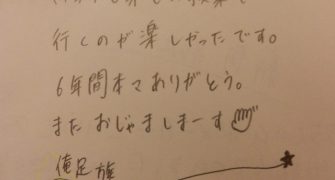 行くのが楽しかったです。
6年間本マありがとう。
また おじゃましまーす
俺足旅